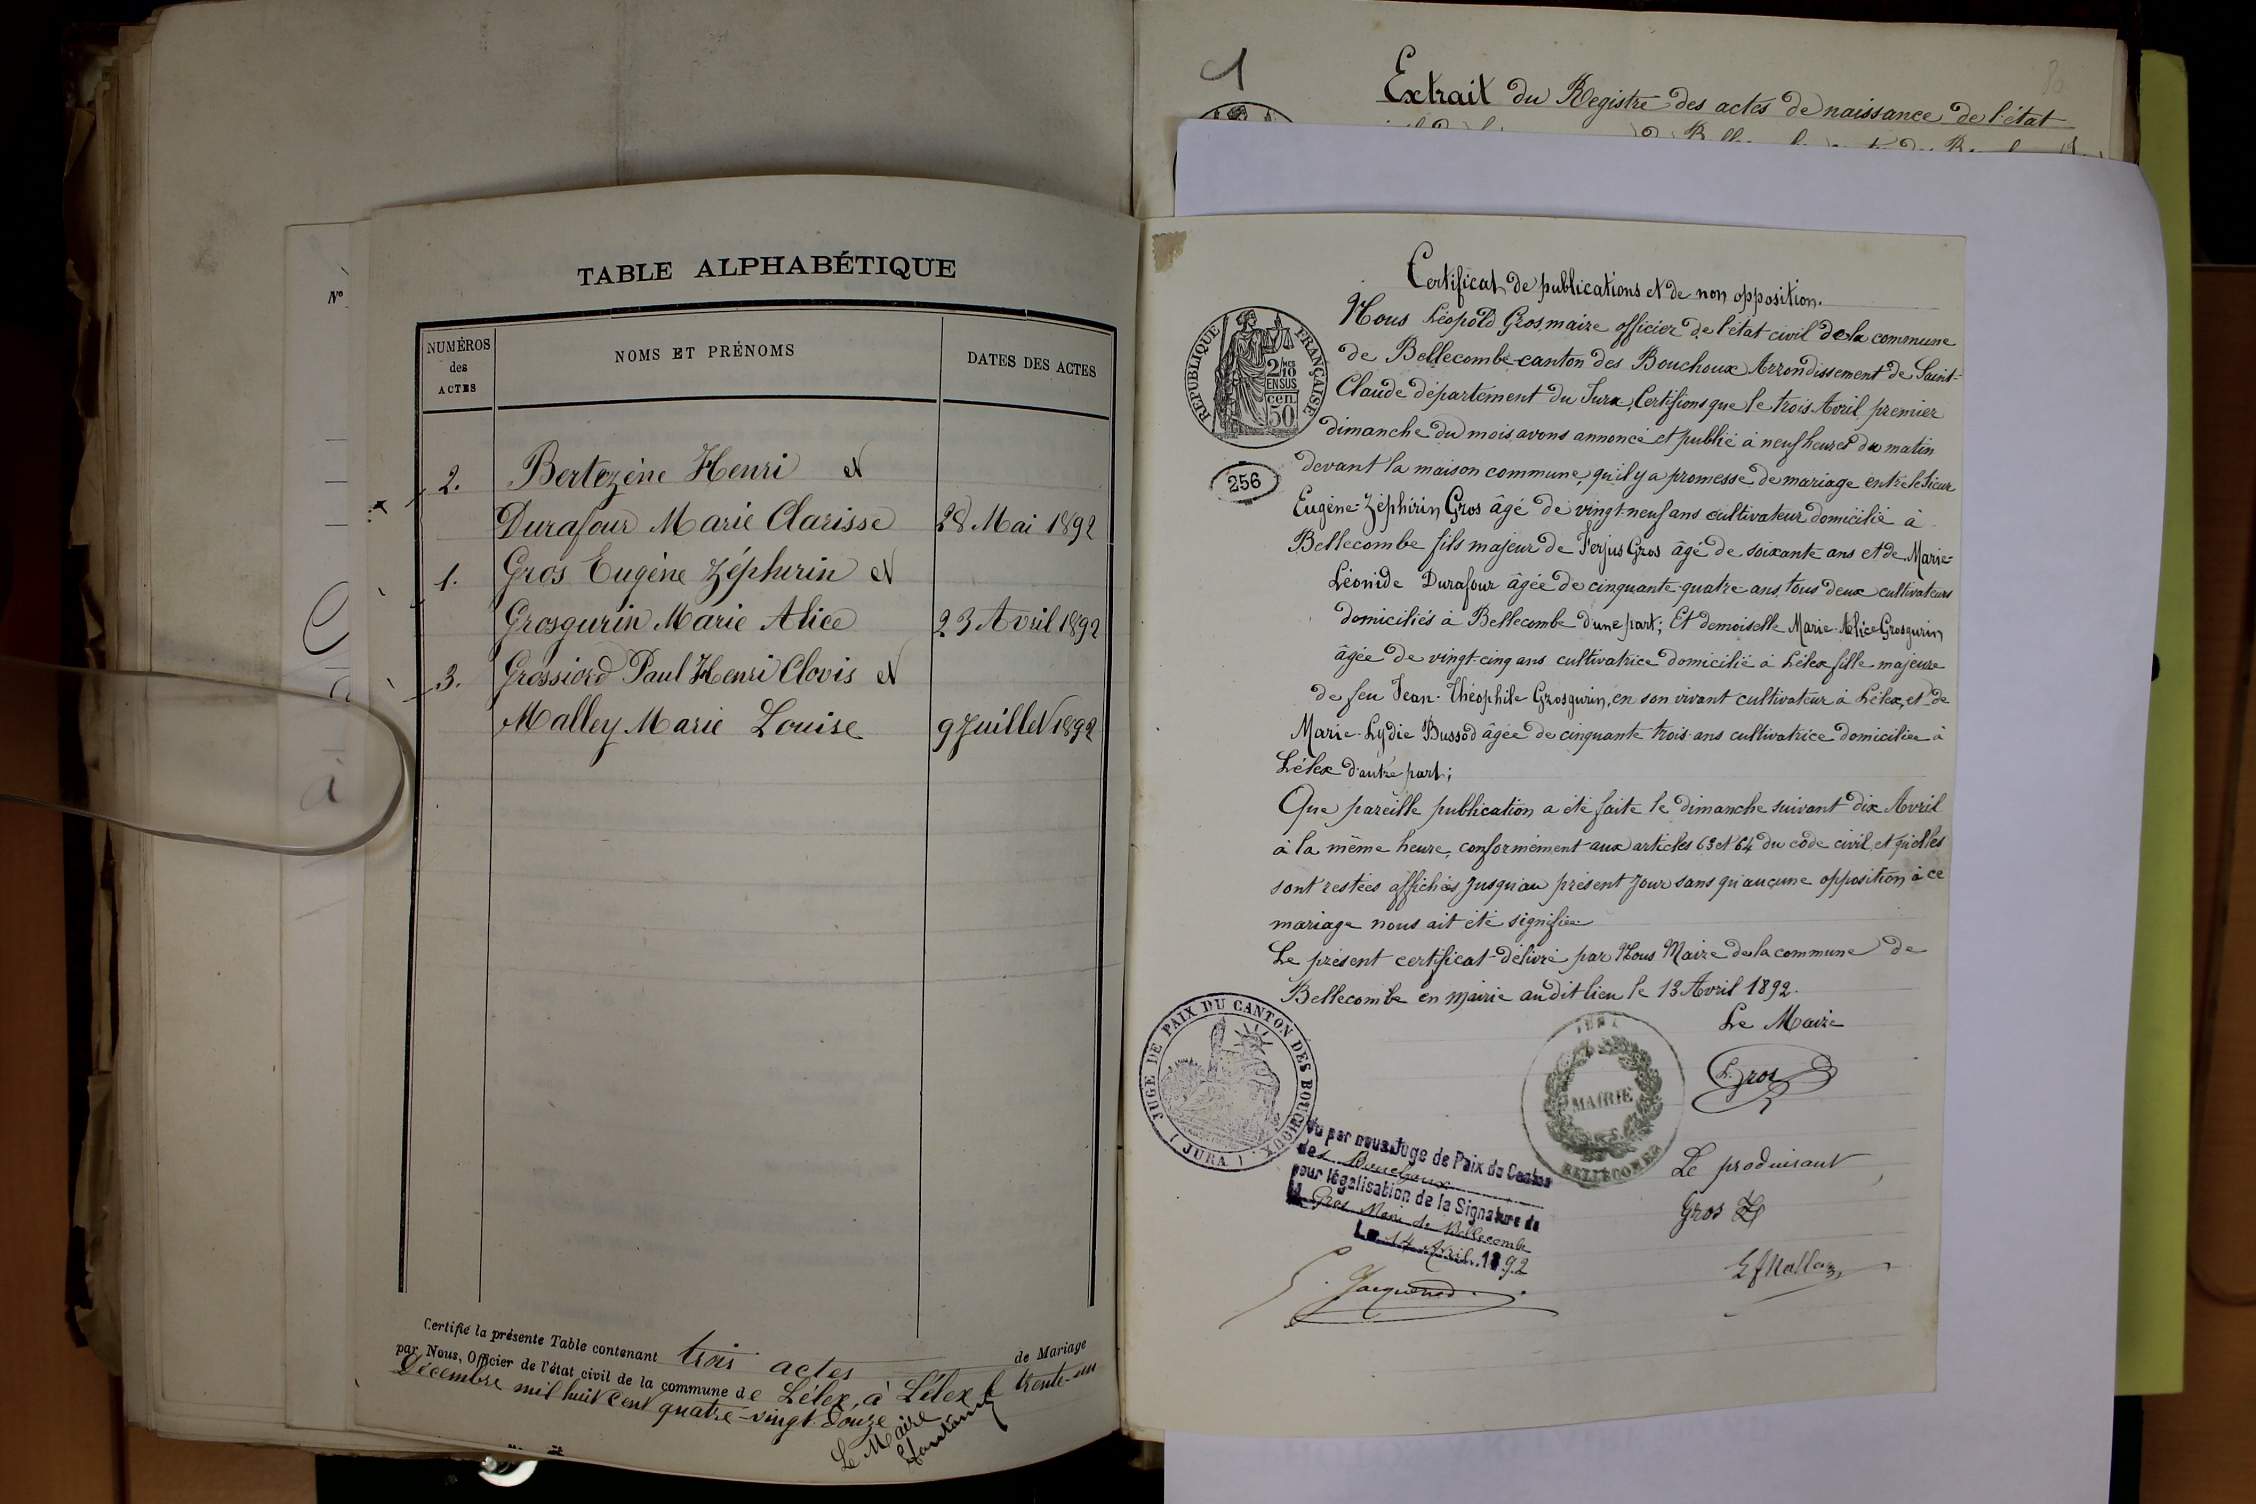 TABLE ALPHABÉTIQUE
NUMÉROS des ACTES
NOMS ET PRÉNOMS
DATES DES ACTES
2. Bertozène Henri et
Durafour Marie Clarisse 28 Mai 1892
1. Gros Eugène Zéphirin et
Grosgurin Marie Alice 23 Avril 1892
3. Grossiord Paul Henri Clovis et
Malley Marie Louise 9 Juillet 1892
Certifié la présente Table contenant trois actes de Mariage
par Nous, Officier de l'état civil de la commune de Lélex, à Lélex le trente-un
Décembre mil huit cent quatre-vingt-douze
Le Maire
Nº
à
Extrait du Registre des actes de naissance de l'état
Certificat de publications et de non opposition.
Nous Léopold Gros, maire officier de l'état civil de la commune
de Bellecombe canton des Bouchoux Arrondissement de Saint-
Claude département du Jura, Certifions que le trois Avril premier
dimanche du mois avons annoncé et publié à neuf heures du matin
devant la maison commune, qu'il y a promesse de mariage entre le Sieur
Eugène-Zéphirin Gros âgé de vingt-neuf ans cultivateur domicilié à
Bellecombe fils majeur de Ferjus Gros âgé de soixante ans et de Marie-
Léonide Durafour âgée de cinquante-quatre ans, tous deux cultivateurs
domiciliés à Bellecombe d'une part; Et demoiselle Marie-Alice Grosgurin
âgée de vingt-cinq ans cultivatrice domicilié à Lélex fille majeure
de feu Jean-Théophile Grosgurin, en son vivant cultivateur à Lélex, et de
Marie-Lydie Bussod âgée de cinquante trois ans cultivatrice domiciliée à
Lélex d'autre part;
Que pareille publication a été faite le dimanche suivant dix Avril
à la même heure, conformément aux articles 63 et 64 du code civil, et qu'elles
sont restées affichées jusqu'au présent jour sans qu'aucune opposition à ce
mariage nous ait été signifiée
Le présent certificat délivré par Nous Maire de la commune de
Bellecombe en mairie audit lieu le 13 Avril 1892.
Le Maire
L. Gros
Le produisant
Gros Z
RÉPUBLIQUE FRANÇAISE
2/10 EN SUS
50 cen
256
JUGE DE PAIX DU CANTON DES BOUCHOUX
(JURA)
MAIRIE
BELLECOMBE
Vu par nous Juge de Paix du Canton
des Bouchoux
pour légalisation de la Signature de
M Gros Maire de Bellecombe
Le 14 Avril 1892